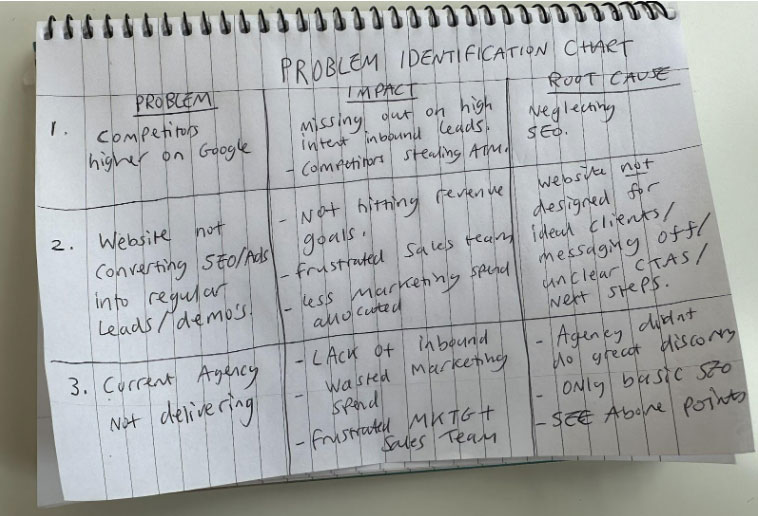 PROBLEM IDENTIFICATION CHART
PROBLEM
IMPACT
ROOT CAUSE
1.
Competitors
higher on Google
Missing out on high
intent inbound leads.
- Competitors stealing ATM.
Neglecting
SEO.
2.
Website not
converting SEO/Ads
into regular
Leads/demo's.
- Not hitting revenue
goals.
- frustrated sales team
- less marketing spend
allocated
Website not
designed for
ideal clients/
messaging off/
unclear CTAS/
Next steps.
3.
Current Agency
Not delivering
- LAck of inbound
Marketing
- Wasted
spend
- frustrated MKTG+
Sales Team
- Agency didnt
do great discovry
- ONLY basic SEO
- SEE Above points